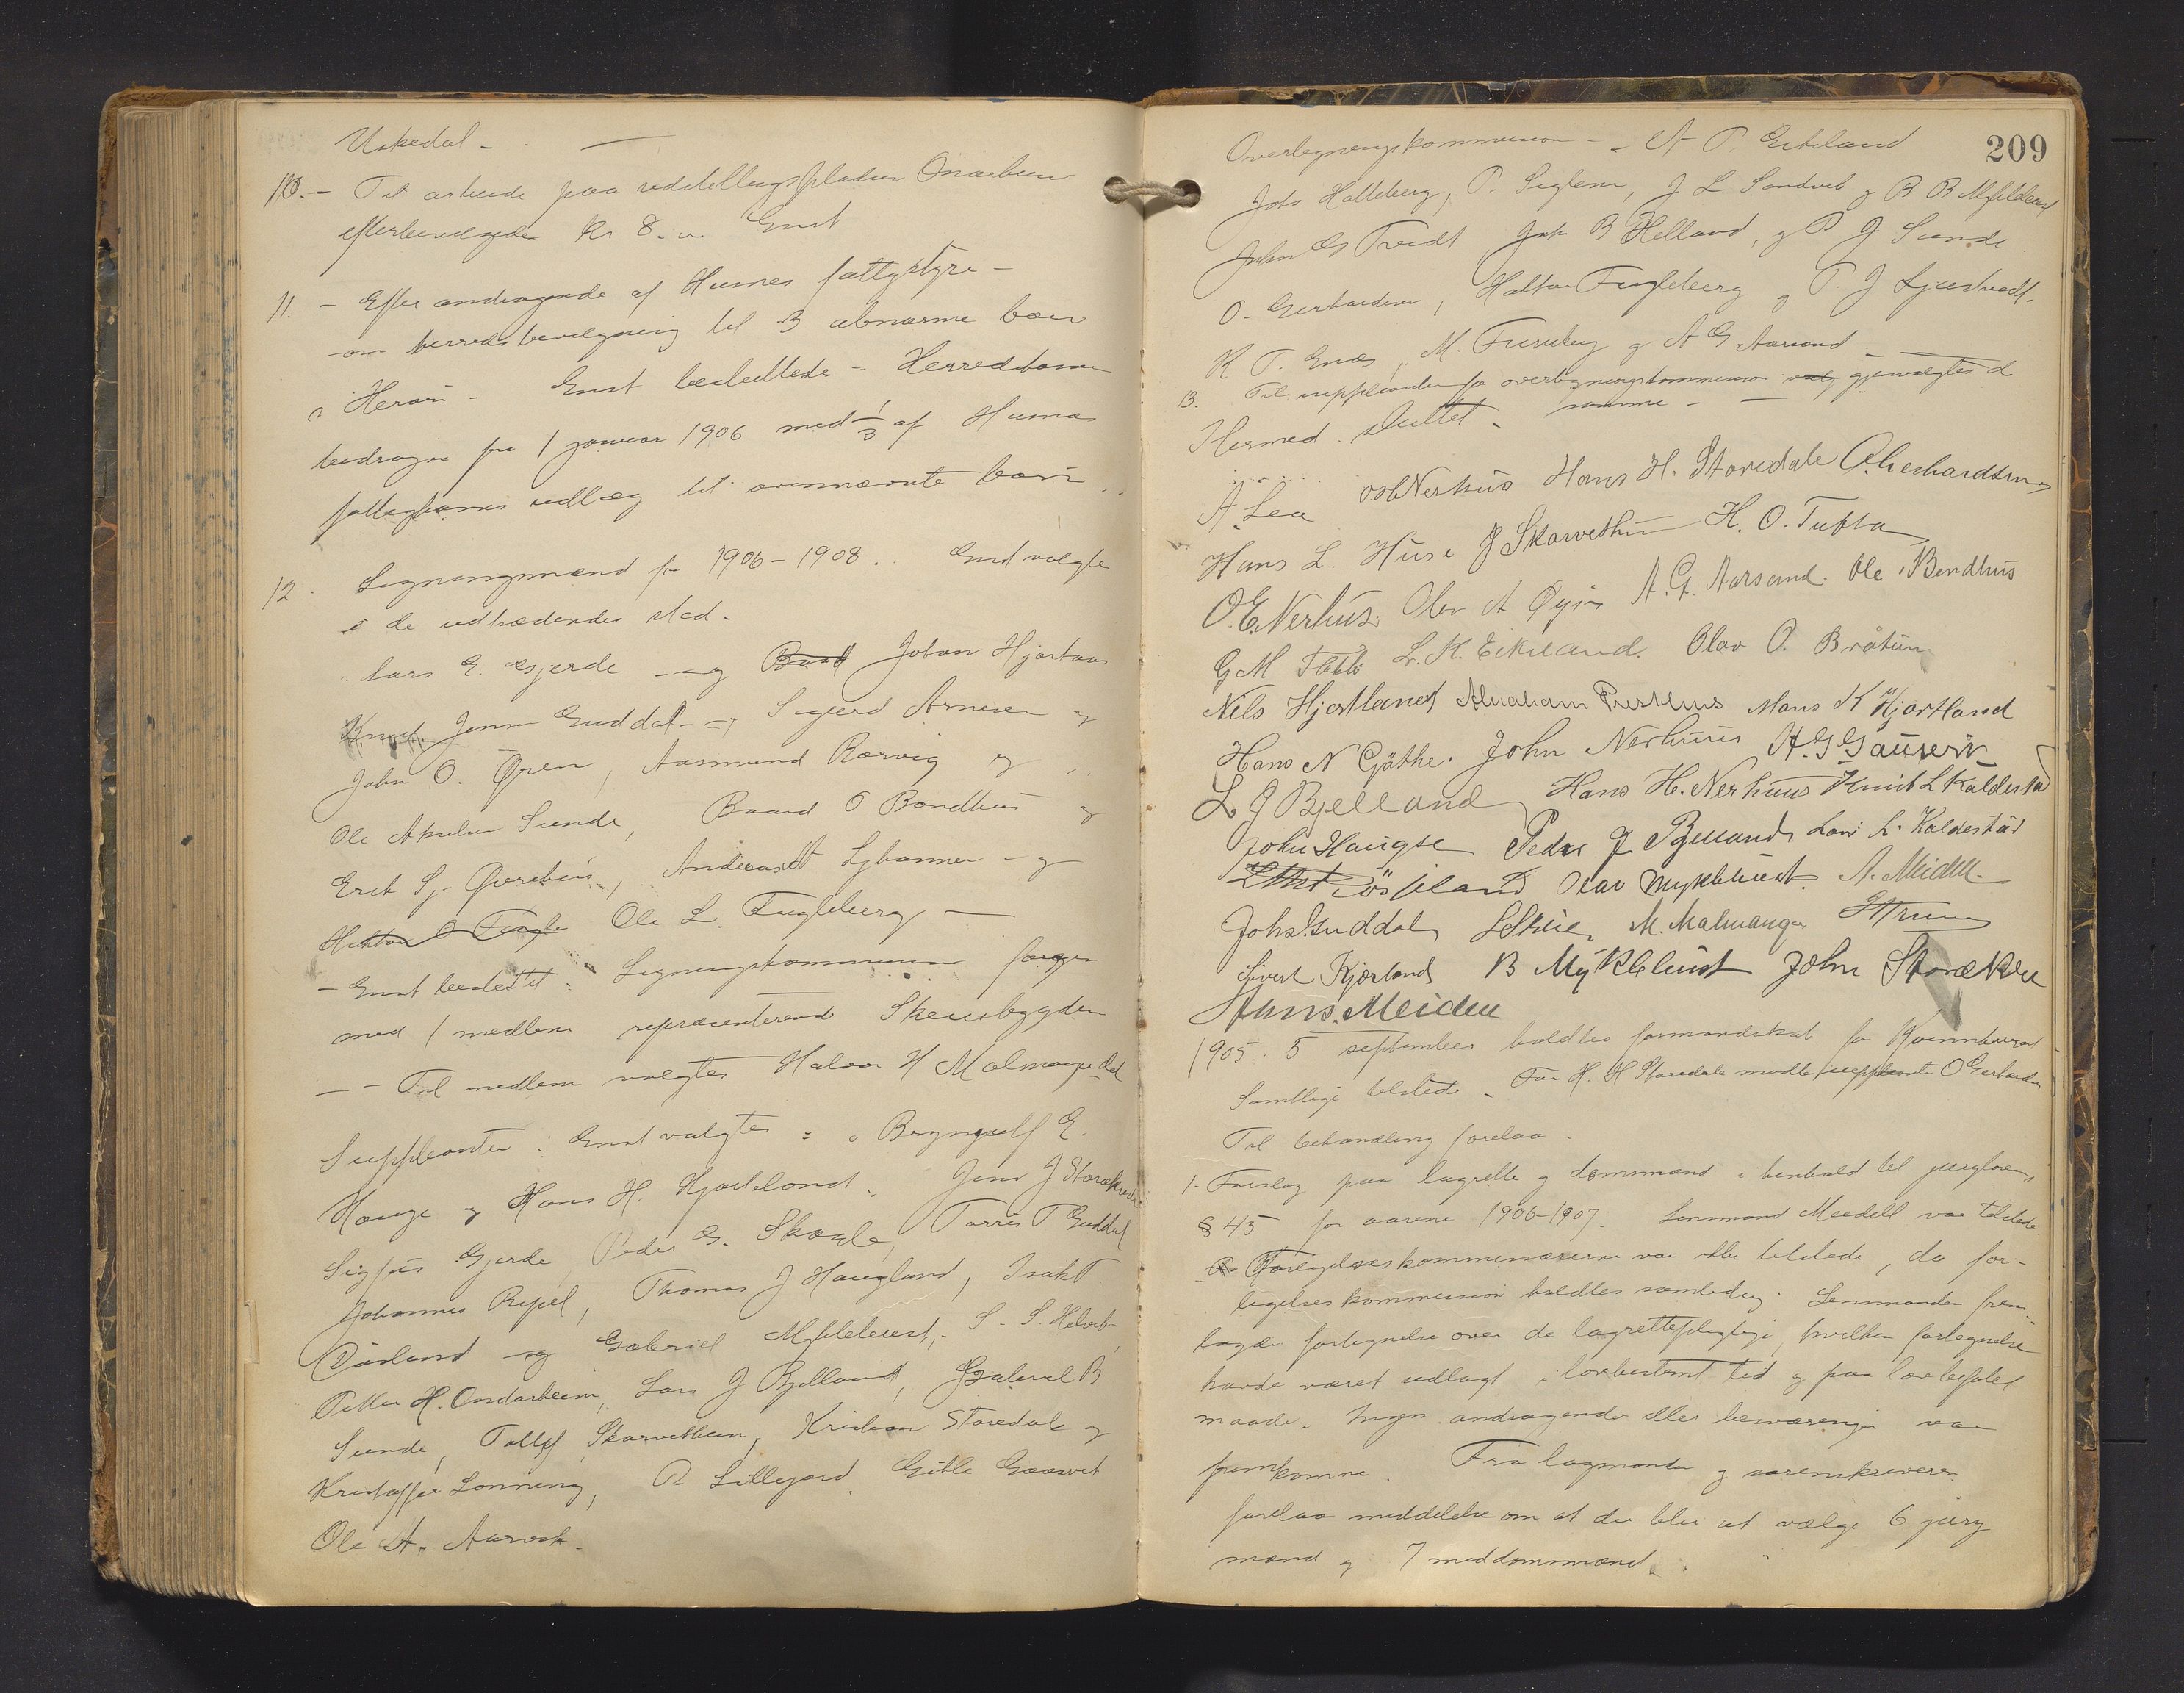 Uskedal -
10. - Til arbeide paa udstillingspladsen Onarheim
efterbevilgedes Kr 8.00 Enst
11. - Efter andragende af Husnes fattigstyre -
- om herredsbevilgning til 3 abnorme børn
i Herøen - Enst besluttede - Herredskassen
bidrager fra 1 januar 1906 med 1/3 af Husnes
fattigkasses udlæg til ovennævnte børn
12. Ligningsmænd for 1906-1908. Enst valgte
i de udtrædendes sted.
Lars E. Gjerde - og Johan Hjortaas
Knut Jensen Guddal - og Sigurd Arnesen og
John O. Øren, Aasmund Rørvig og
Ole Akselsen Sunde, Baard O Bondhus og
Erik Sj. Øvrebøs, Andreas Ljbanner - og
Halton O Fugle Ole L. Fugleberg -
- Enst besluttet: Ligningskommissionen forøges
med 1 medlem repræsenterende Skeisbygden
- - Til medlem valgtes Halvor H Malmangedal
Suppleanter: Enst valgtes: Brynjulf E.
Hauge og Hans H. Hjortland, Jens J Storækre
Sigfus Gjerde, Peder G. Skaale, Torris T Guddal
Johannes Røpel, Thomas J Haugland, Isak T.
Døsland og Gabriel Myklebust, S. S. Helvik
Petter H. Ondarheim, Lars J Bjelland, Gabriel B
Sunde, Tollef Skarvethun, Kristian Storedale og
Kristoffer Lønning, P. Lillejord, Gitle Gaasvik
Ole A. Aarvik.
209
Overligningskommission - - A T. Eikeland
Johs Halleberg, P. Seglem, J L Sandvik og B B Myklebust
John G Tveidt, Joh B Helland, og P J Sunde
O. Gerhardsen, Halton Fugleberg og T. J Ljosthvedt.
K T. Enes, M. Furuberg og A G Aarsand
13. Til suppleanter for overligningskommission valg gjenvalgtes de
samme -
Hermed sluttet.
A. Lea OsNerhus Hans H. Storedale O. Gerhardsen
Hans L. Huse J Skarvethun H. O. Tufta
O. E. Nerhus. Olav A Øyjn A. G. Aarsand. Ole Bondhus
G M Flatbø L. K. Eikeland. Olav O. Bråtun
Nils Hjortland Abraham Presthus Mons K Hjortland
Hans N Gjøthe. John Nerhuus H G Gausvik
L J Bjelland Hans H. Nerhuus Knut L Kaldestad
John Haugse Peder J Bjelland Lars L. Kaldestad
Døsland Olav Myklebust. A. Meidell.
Johs. Guddal LSkeie M. Malmanger
Sivert Kjærland B Myklebust John Storækre
Hans. Meidell
1905. 5 september holdtes formandskab for Kvinnherred
Samtlige tilstede. For H. H Storedale mødte suppleanten O Gerhardsen
Til behandling forelaa.
1. Forslag paa lagrette og domsmænd i henhold til juryloven,
§ 45 for aarene 1906-1907. Lensmand Meidell var tilstede
Forligelseskommissærerne var ikke tilstede, da for-
ligelseskommission holdtes samtidig. Lensmanden frem-
lagde fortegnelse over de lagrettepligtige, hvilken fortegnelse
havde været udlagt i lovbestemt tid og paa lovbefalet
maade. Ingen andragende eller besværinger var
fremkomne. Fra lagmanden og sorenskriveren
forelaa meddelelse om at der blir at vælge 6 jury
mænd og 7 meddomsmænd.